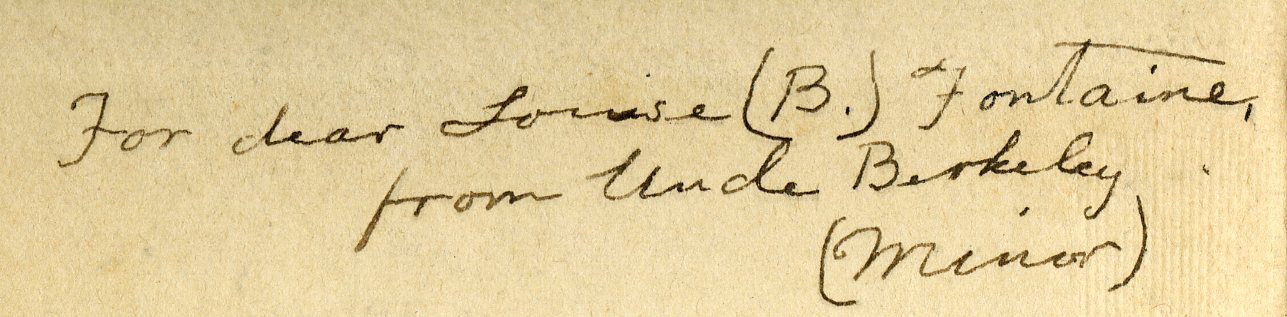 For dear Louise (B.) Fontaine,
from Uncle Berkeley
(Minor)